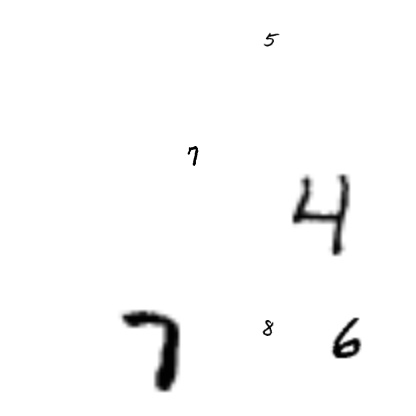 5
7
4
7 8 6